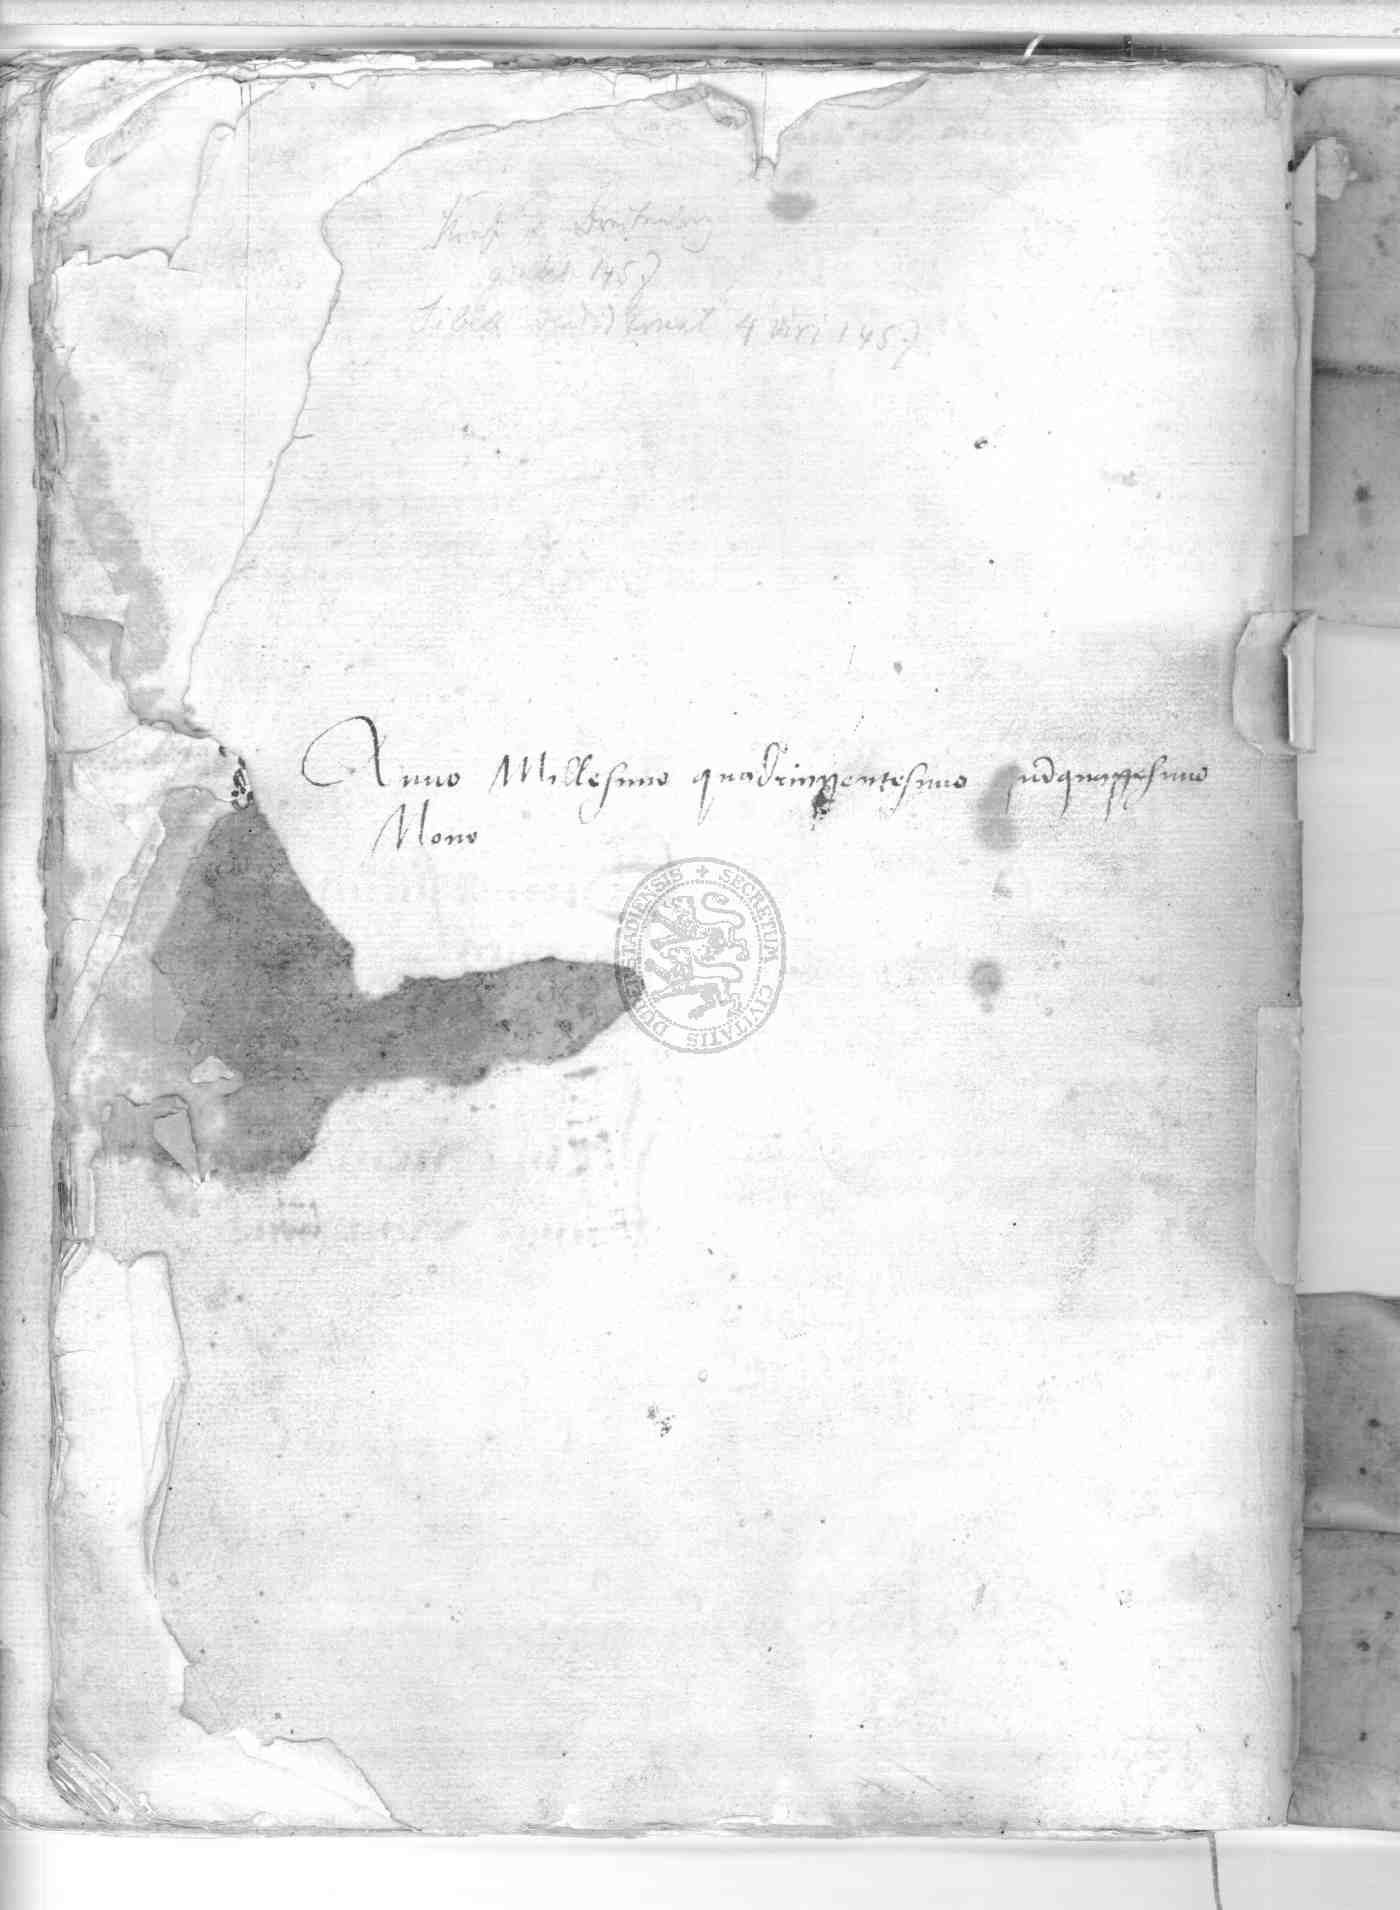 1457
vendiderunt 4 viri 1457
Anno Millesimo quadringentesimo quinquagesimo
Nono
SECRETUM CIVITATIS DUDERSTADIENSIS